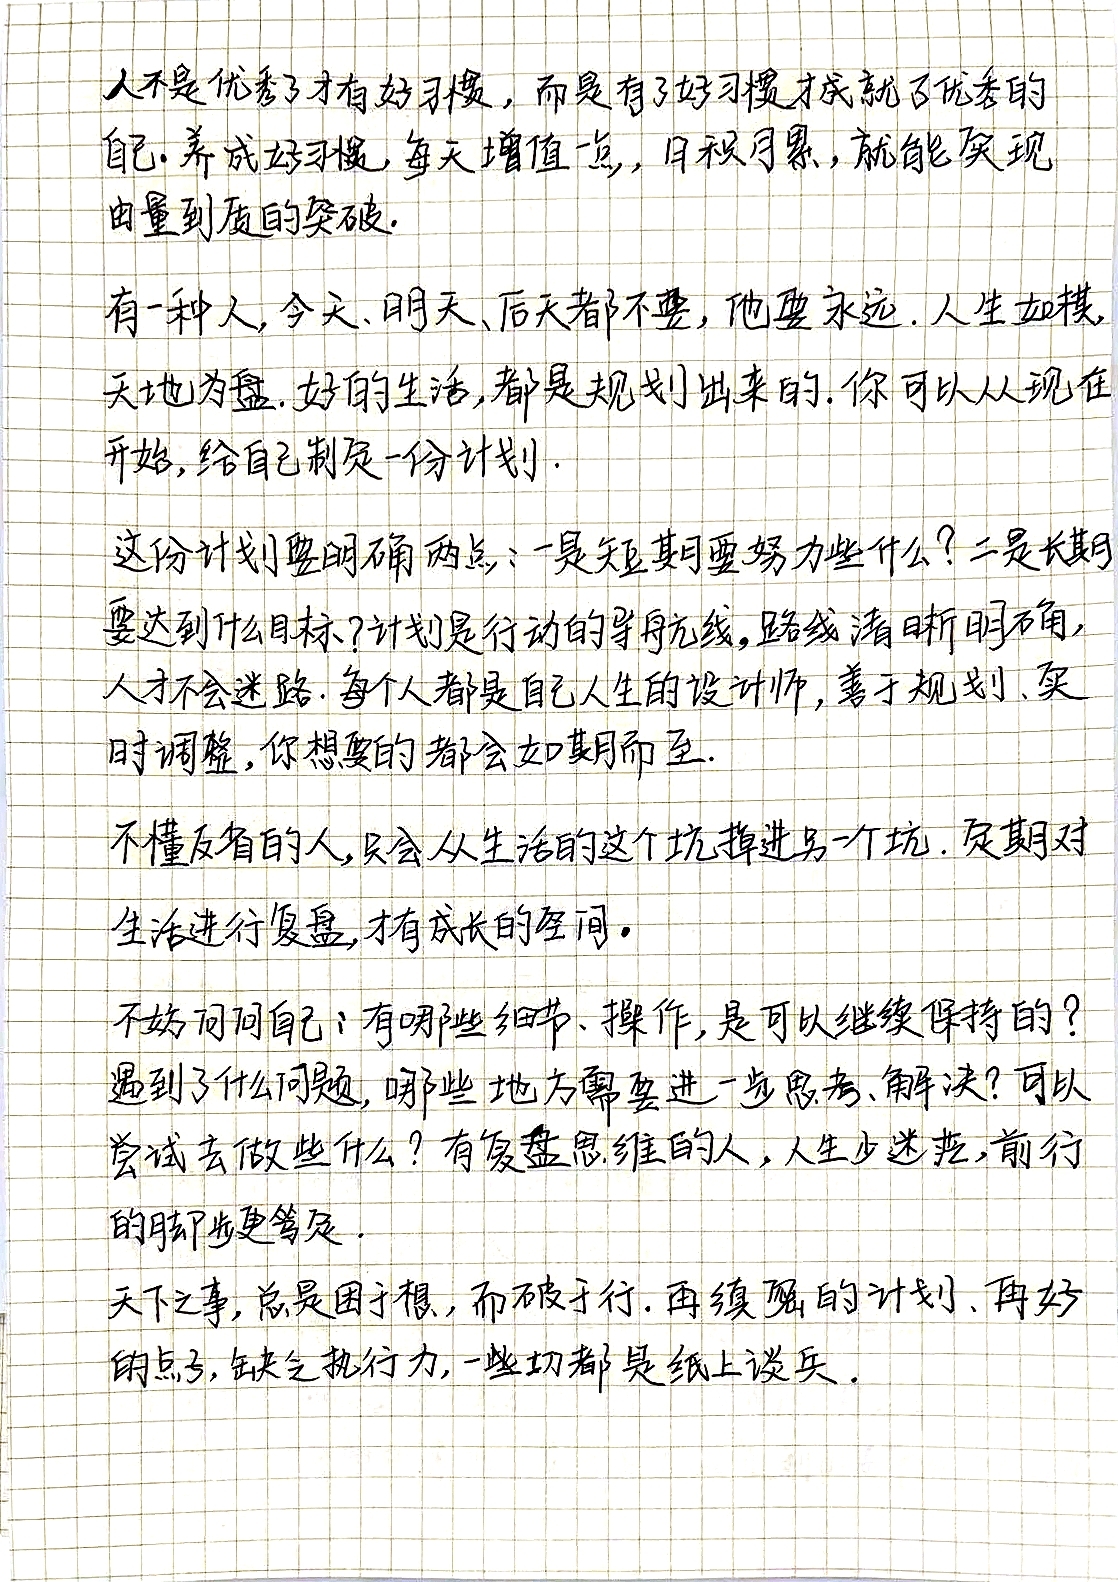 人不是优秀了才有好习惯，而是有了好习惯才成就了优秀的
自己.养成好习惯,每天增值一点，日积月累，就能实现
由量到质的突破.
有一种人,今天、明天、后天都不要，他要永远.人生如棋,
天地为盘.好的生活,都是规划出来的.你可以从现在
开始,给自己制定一份计划.
这份计划要明确两点：一是短期要努力些什么？二是长期
要达到什么目标？计划是行动的导航线。路线清晰明确，
人才不会迷路.每个人都是自己人生的设计师，善于规划、实
时调整，你想要的都会如期而至.
不懂反省的人,只会从生活的这个坑掉进另一个坑.定期对
生活进行复盘,才有成长的空间。
不妨问问自己：有哪些细节、操作,是可以继续保持的？
遇到了什么问题,哪些地方需要进一步思考、解决？可以
尝试去做些什么？有复盘思维的人，人生少迷茫，前行
的脚步更笃定.
天下之事,总是困于想，而破于行.再缜密的计划、再好
的点子,缺乏执行力,一些切都是纸上谈兵.